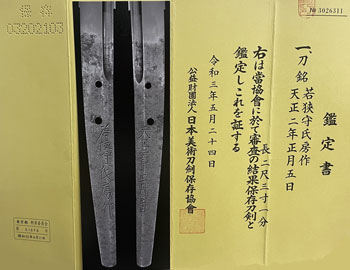 № 3026311
鑑定書
一、刀 銘 若狭守氏房作
天正二年正月五日
長二尺三寸一分
右は當協會に於て審査の結果保存刀剣と
鑑定しこれを証する
令和三年五月二十四日
公益財團法人 日本美術刀剣保存協會
保存
03202103